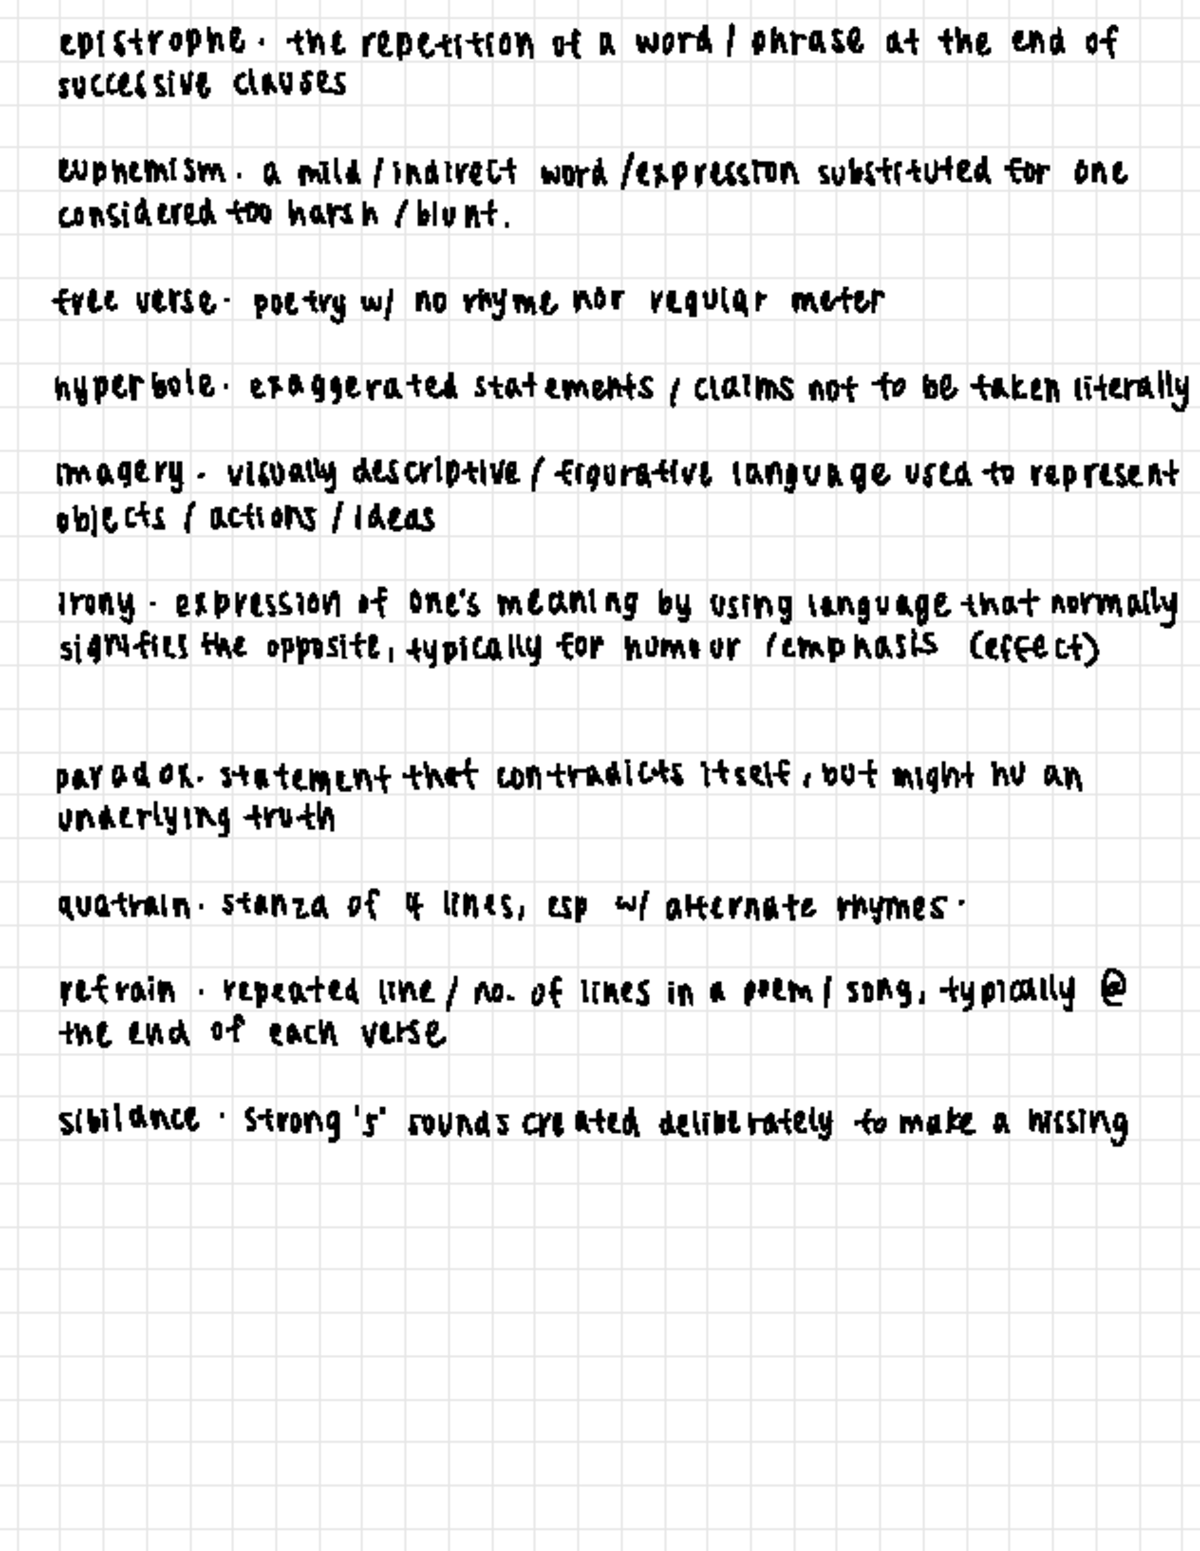 epistrophe · the repetition of a word / phrase at the end of
successive clauses
euphemism · a mild / indirect word / expression substituted for one
considered too harsh / blunt.
free verse · poetry w/ no rhyme nor regular meter
hyperbole · exaggerated statements / claims not to be taken literally
imagery · visually descriptive / figurative language used to represent
objects / actions / ideas
irony · expression of one's meaning by using language that normally
signifies the opposite, typically for humour / emphasis (effect)
paradox · statement that contradicts itself, but might hv an
underlying truth
quatrain · stanza of 4 lines, esp w/ alternate rhymes ·
refrain · repeated line / no. of lines in a poem / song, typically @
the end of each verse
sibilance · strong 's' sounds created deliberately to make a hissing